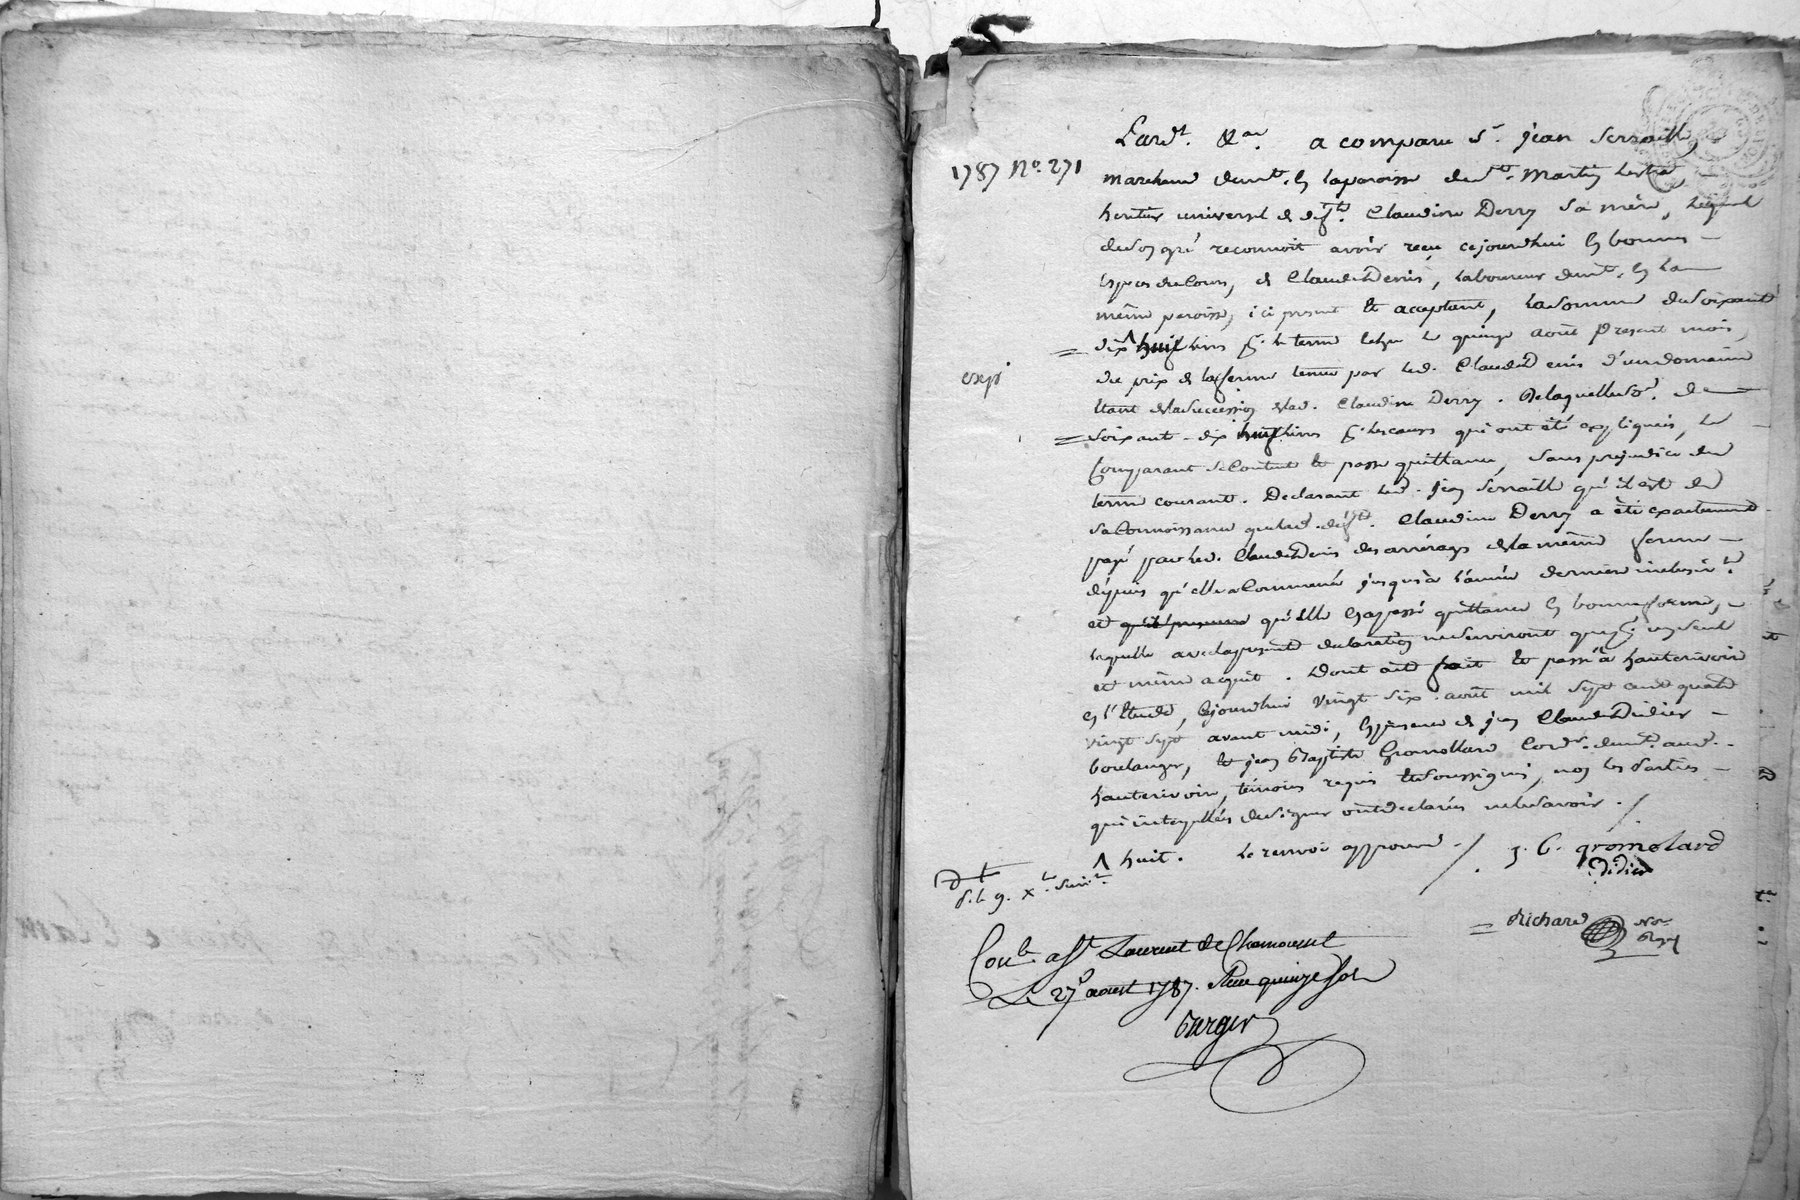 Pardt. &a. a comparu Sr. jean Serraille
1787 No. 271
marchand demt. en la paroisse de St. Martin Lestra
heritier universel de deffte. Claudine Derry sa mère, lequel
de son gré reconnoit avoir reçu cejourdhui en bonnes
espces de Cours, de Claude Denis, laboureur demt. en la
même paroisse, ici present et acceptant, la somme de soixante
dix ^ huit livres pr. le terme echu le quinze août present mois,
expé
du prix de la ferme tenue par led. Claude Denis d'un domaine
etant de la succession de lad. Claudine Derry. De laquelle so. de
soixante-dix huit livres pr. les causes qui ont été expliquées, le
comparant se Contente et passe quittance, sans prejudice du
terme courant. Declarant led. jean Serraille qu'il est de
sa Connoissance que lad. deffte. Claudine Derry a été exactement
payé par led. Claude Denis des arrérages de la même ferme
dépuis qu'elle a Commencé jusqu'à l'année derniere inclusivt.
et qu'elle en a passé quittance en bonne forme,
laquelle avec la presente declaration ne serviront que pr. un seul
et même acquit. Dont acte fait et passé à hauterivoire
en l'étude, cejourdhui vingt six août mil sept cent quatre
vingt sept avant midi, en presence de jean Claude Didier
boulanger, et jean Baptiste Gromollard Cordr. demt. aud.
hauterivoire, témoins requis et soussignés, non les parties
qui interpellées de signer ont declarées ne le savoir. /
^ huit. le renvoi approuvé. /
J. B. gromolard
Didier
d. l. 9. x
= Richard Not. Royal
Con.le a St Laurent de Chamousset
Le 27 aoust 1787. Reçu quinze sols
Burger